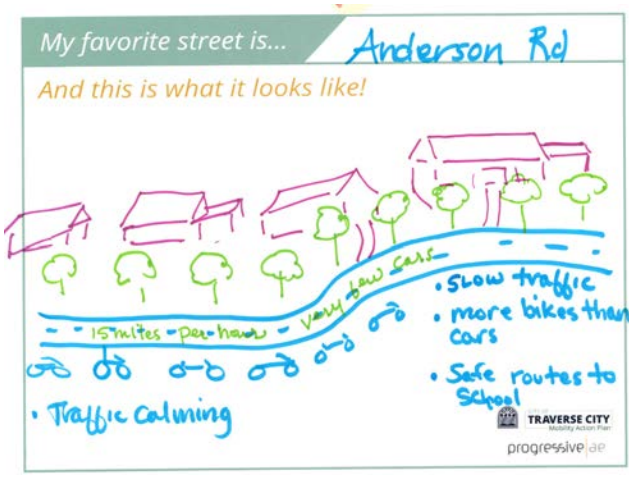 My favorite street is... Anderson Rd
And this is what it looks like!
very few cars
15 miles per hour
• slow traffic
• more bikes than
cars
• Safe routes to
School
• Traffic Calming
CITY OF
TRAVERSE CITY
Mobility Action Plan
progressive ae